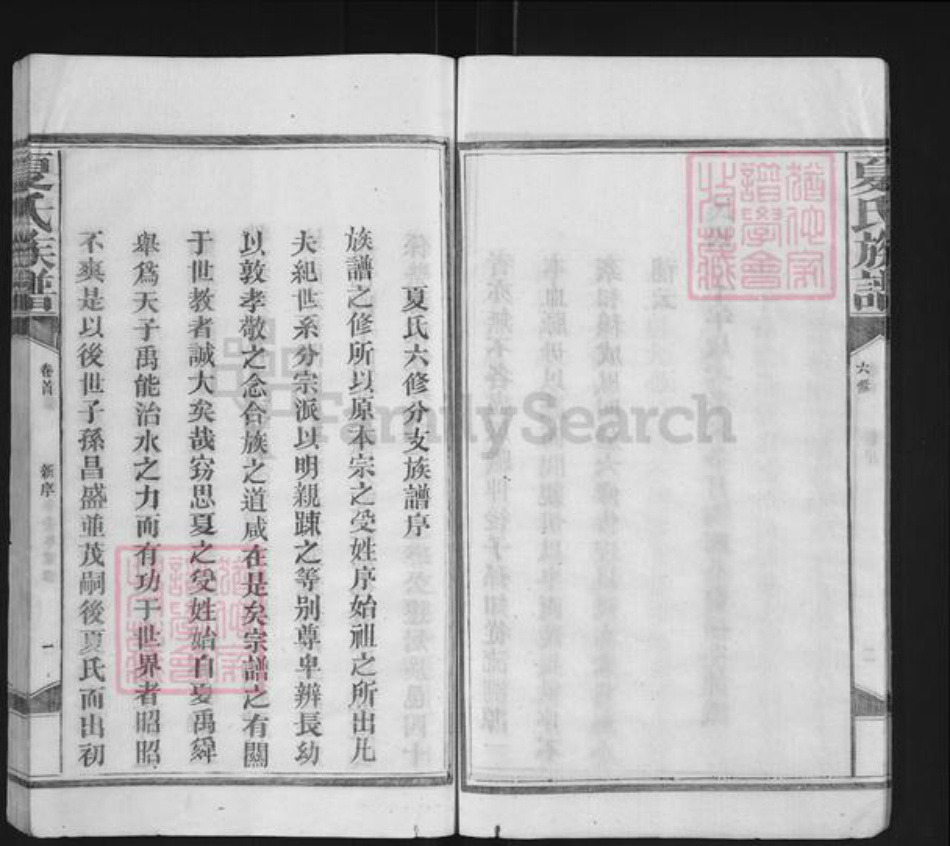 夏氏族譜
六修
夏氏六修分支族譜序
族譜之修所以原本宗之受姓序始祖之所出凡
夫紀世系分宗派以明親踈之等别尊卑辨長幼
以敦孝敬之念合族之道咸在是矣宗譜之有關
于世教者誠大矣哉窃思夏之受姓始自夏禹繹
舉爲天子禹能治水之力而有功于世界者昭昭
不爽是以後世子孫昌盛並茂嗣後夏氏而出初
夏氏族譜
卷首
新序
一
FamilySearch